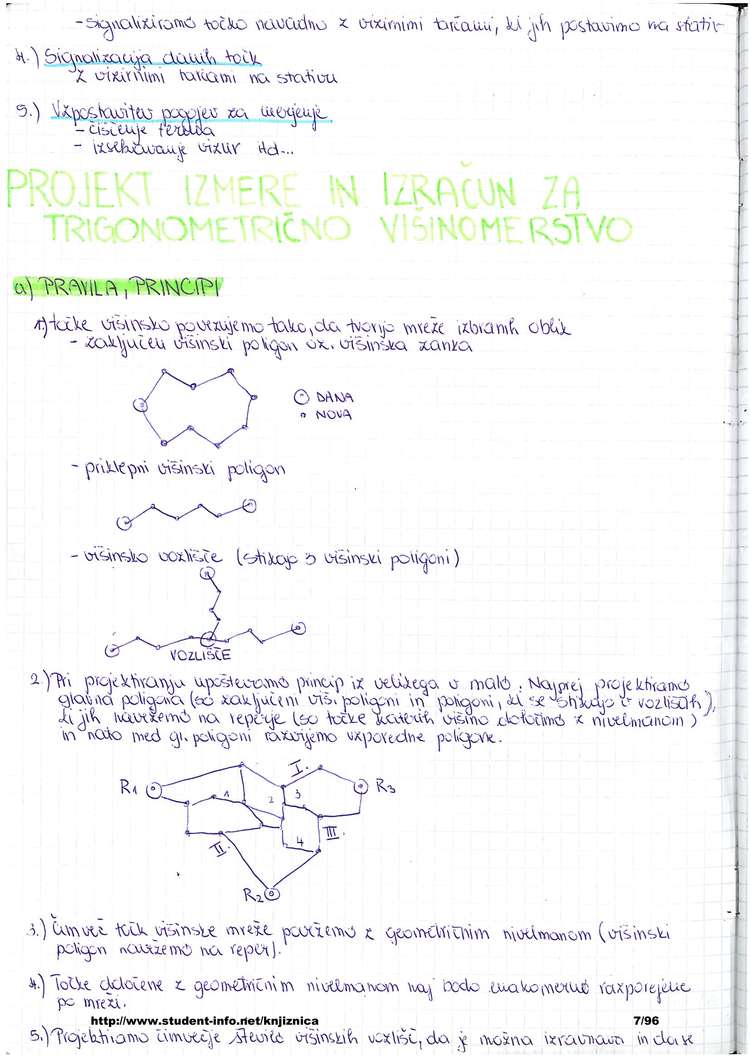 - signaliziramo točko navadno z vizirnimi tarčami, ki jih postavimo na stativ
4.) Signalizacija danih točk
z vizirnimi tarčami na stativu
5.) Vzpostavitev pogojev za merjenje
- čiščenje terena
- izsekavanje vizur itd...
PROJEKT IZMERE IN IZRAČUN ZA
TRIGONOMETRIČNO VIŠINOMERSTVO
a) PRAVILA, PRINCIPI
1) točke višinsko povezujemo tako, da tvorijo mreže izbranih oblik
- zaključeni višinski poligon oz. višinska zanka
DANA
NOVA
- priklepni višinski poligon
- višinsko vozlišče (stikajo 3 višinski poligoni)
VOZLIŠČE
2.) Pri projektiranju upoštevamo princip iz velikega v malo. Najprej projektiramo
glavna poligona (so zaključeni viš. poligoni in poligoni, ki se stikajo v vozliščih),
ki jih navežemo na reperje (so točke katerih višino določimo z nivelmanom)
in nato med gl. poligoni razvijemo vzporedne poligone.
I.
R1 1 2 3 R3
II. 4 III.
R2
3.) Čimveč točk višinske mreže povežemo z geometričnim nivelmanom (višinski
poligon navežemo na reper).
4.) Točke določene z geometričnim nivelmanom naj bodo enakomerno razporejene
po mreži.
http://www.student-info.net/knjiznica 7/96
5.) Projektiramo čimvečje število višinskih vozlišč, da je možna izravnava in da se